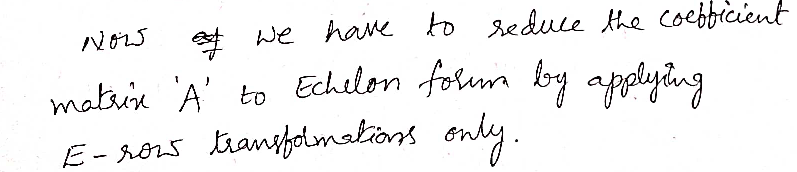 Now we have to reduce the coefficient
matrix 'A' to Echelon form by applying
E-row transformations only.